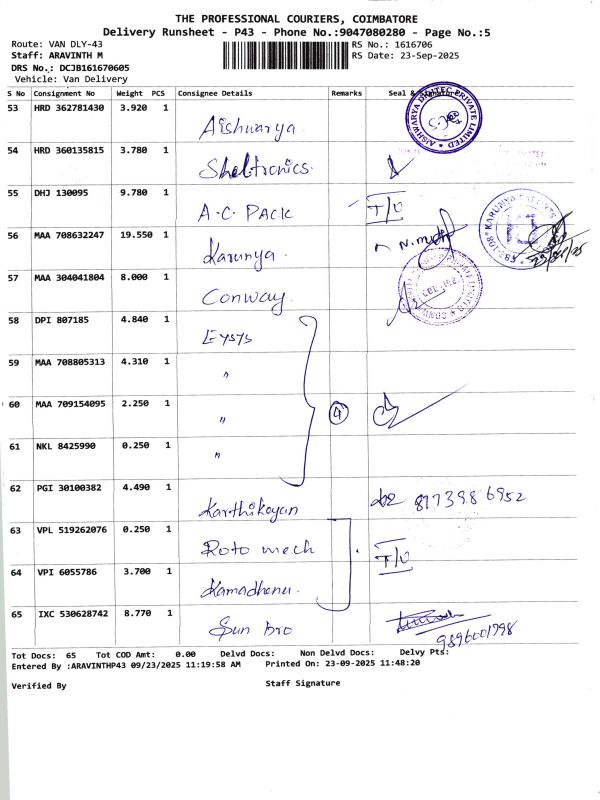 THE PROFESSIONAL COURIERS, COIMBATORE
Delivery Runsheet - P43 - Phone No.:9047080280 - Page No.:5
Route: VAN DLY-43 RS No.: 1616706
Staff: ARAVINTH M RS Date: 23-Sep-2025
DRS No.: DCJB161670605
Vehicle: Van Delivery
S No Consignment No Weight PCS Consignee Details Remarks Seal &
53 HRD 362781430 3.920 1
Aishwarya
AISHWARYA DIGITEC PRIVATE LIMITED
54 HRD 360135815 3.780 1
Sheltronics.
55 DHJ 130095 9.780 1
A.C. PACK T/U
56 MAA 708632247 19.550 1
Karunya.
57 MAA 304041804 8.000 1
Conway.
58 DPI 807185 4.840 1
Eysys
59 MAA 708805313 4.310 1
"
60 MAA 709154095 2.250 1
" 4
61 NKL 8425990 0.250 1
"
62 PGI 30100382 4.490 1
Karthikeyan 8973986952
63 VPL 519262076 0.250 1
Roto mech T/U
64 VPI 6055786 3.700 1
Kamadhenu.
65 IXC 530628742 8.770 1
Sun bro
9896001798
Tot Docs: 65 Tot COD Amt: 0.00 Delvd Docs: Non Delvd Docs: Delvy Pts:
Entered By :ARAVINTHP43 09/23/2025 11:19:58 AM Printed On: 23-09-2025 11:48:20
Verified By Staff Signature